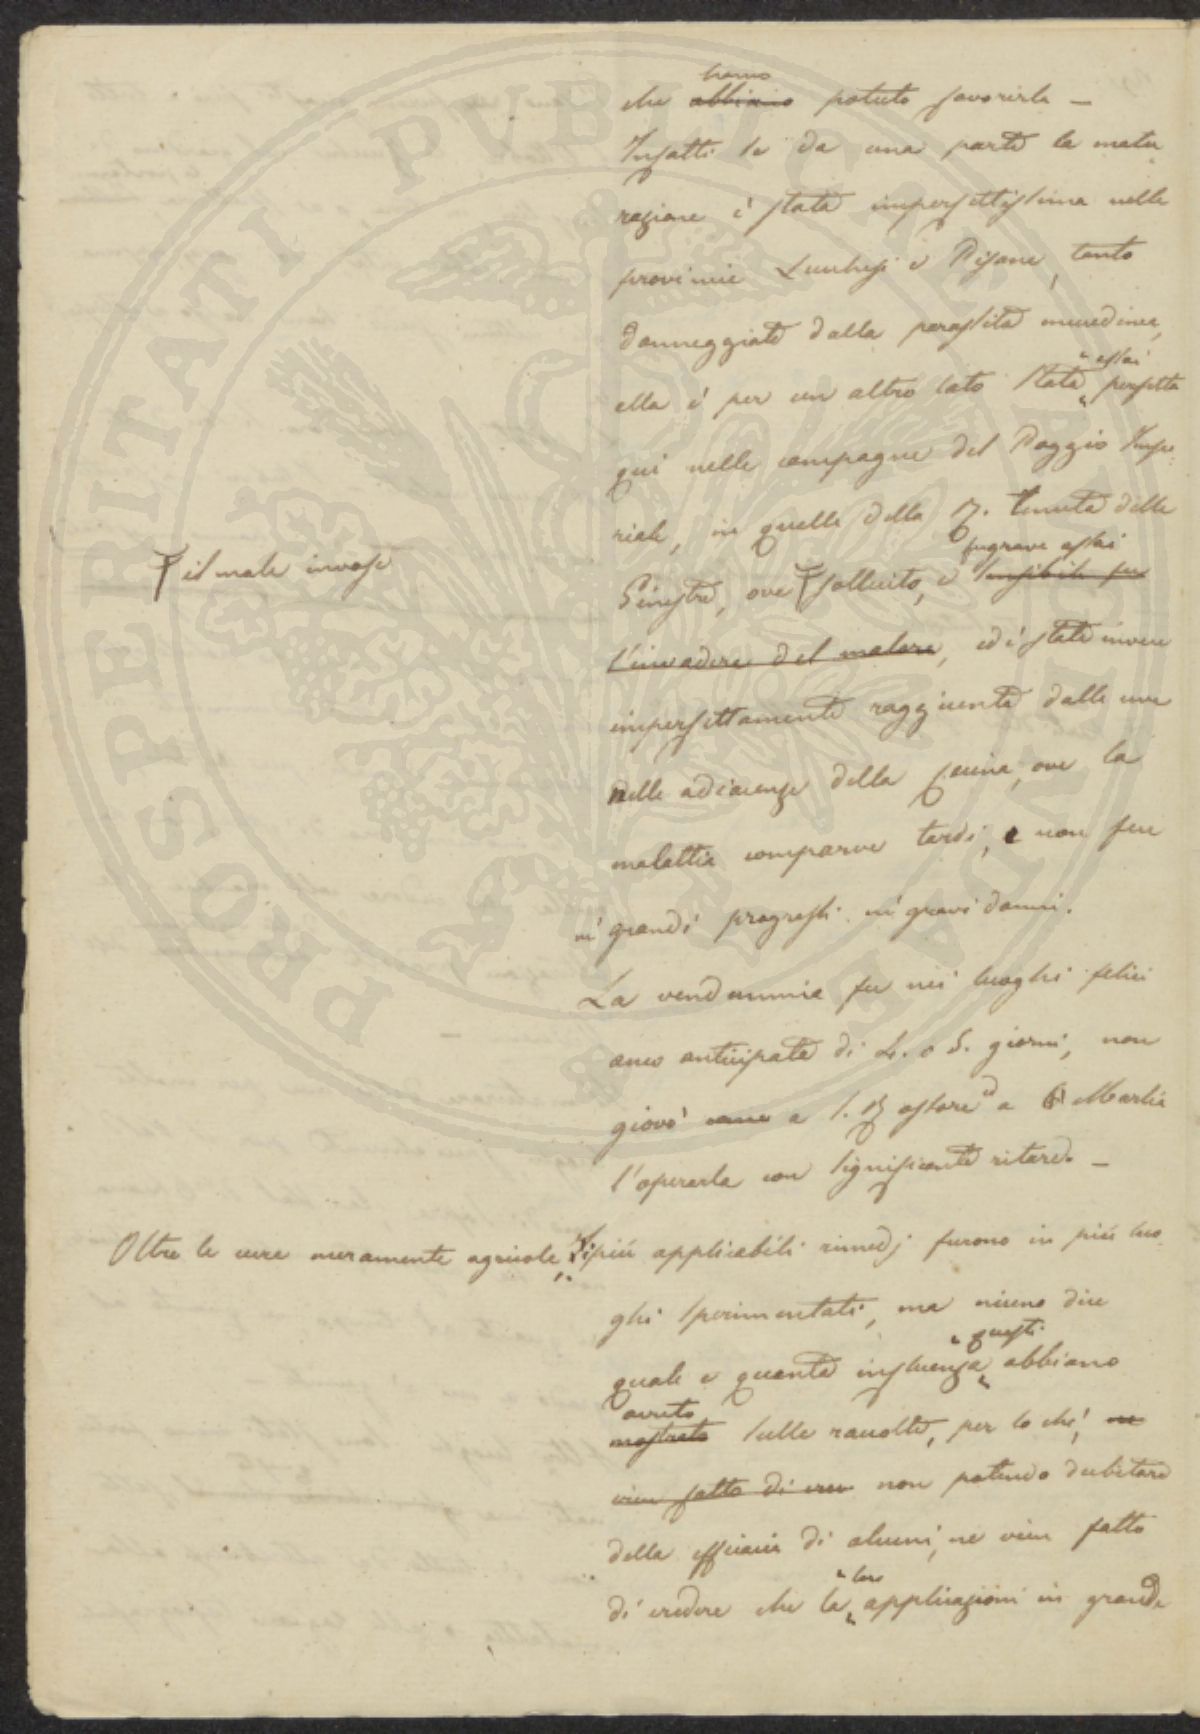 hanno
che abbiano potuto favorirla —
Infatti se da una parte la matu
razione è stata imperfettissima nelle
provincie Lucchesi e Pisane, tanto
danneggiate dalla parassita mucedinea,
assai
ella è per un altro lato stata perfetta
qui nelle campagne del Poggio Impe
riale, in quelle della R. Tenuta delle
fu grave assai
il male invase
Ginestre, ove sollecito, e sensibile fu
l'invadere del malore, ed è stata invece
imperfettamente raggiunta dalle uve
nelle adiacenze della Cecina, ove la
malattia comparve tardi, e non fece
nè grandi progressi nè gravi danni.
La vendemmia fu nei luoghi felici
anco anticipata di 4. o 5. giorni, non
giovò a S. Rossore e a Marlia
l'operarla con significante ritardo. —
Oltre le cure meramente agricole, i più applicabili rimedj furono in più luo
ghi sperimentati, ma niuno dice
questi
quale e quanta influenza abbiano
avuto
mostrato sulle raccolte, per lo chè, ne
vien fatto di non potendo dubitare
della efficacia di alcuni, ne vien fatto
loro
di credere che la applicazioni in grande